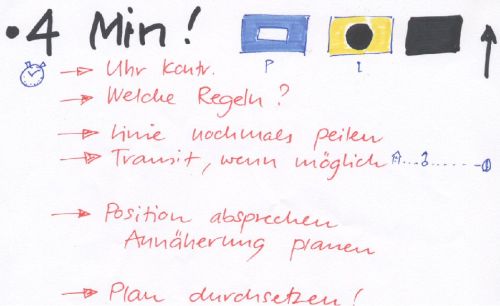 • 4 Min!
P I
→ Uhr Kontr.
→ Welche Regeln?
→ Linie nochmals peilen
→ Transit, wenn möglich
→ Position absprechen
Annäherung planen
→ Plan durchsetzen!